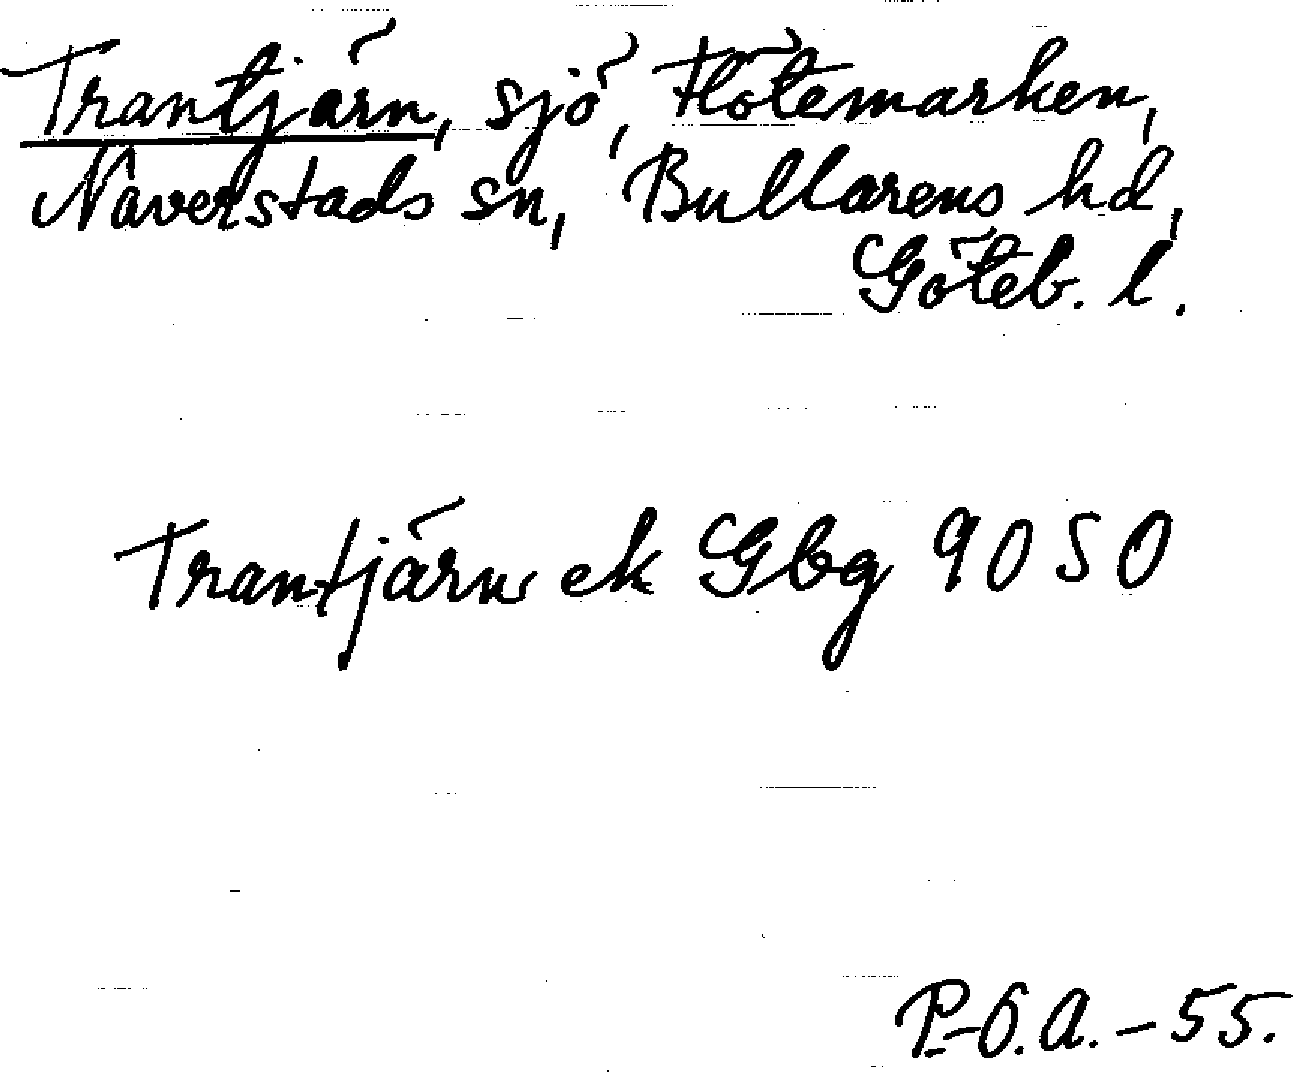 Trantjärn, sjö, Flötemarken,
Naverstads sn, Bullarens hd,
Göteb. l.
Trantjärn ek Gbg 9050
P-O.A. - 55.